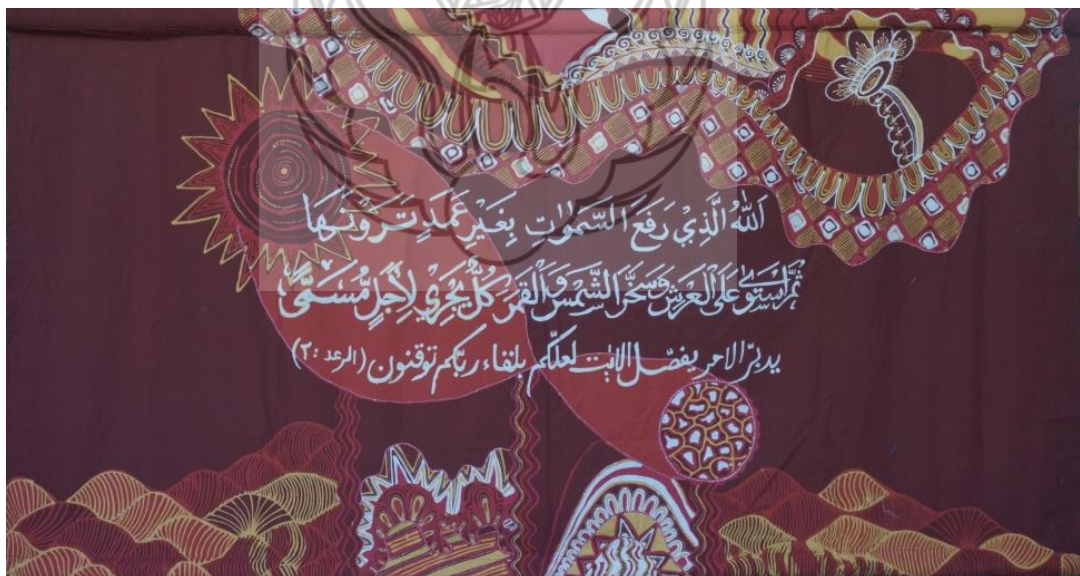 اَللّٰهُ الَّذِيْ رَفَعَ السَّمٰوٰت بِغَيْرِ عَمَدٍ تَرَوْنَهَا
ثُمَّ اسْتَوٰى عَلَى الْعَرْشِ وَسَخَّرَ الشَّمْسَ وَالْقَمَرَ كُلٌّ يَجْرِيْ لِاَجَلٍ مُّسَمًّى
يدبّر الامر يفصّل الاٰيٰت لعلّكم بلقاء ربّكم توقنون (الرعد : ٢)